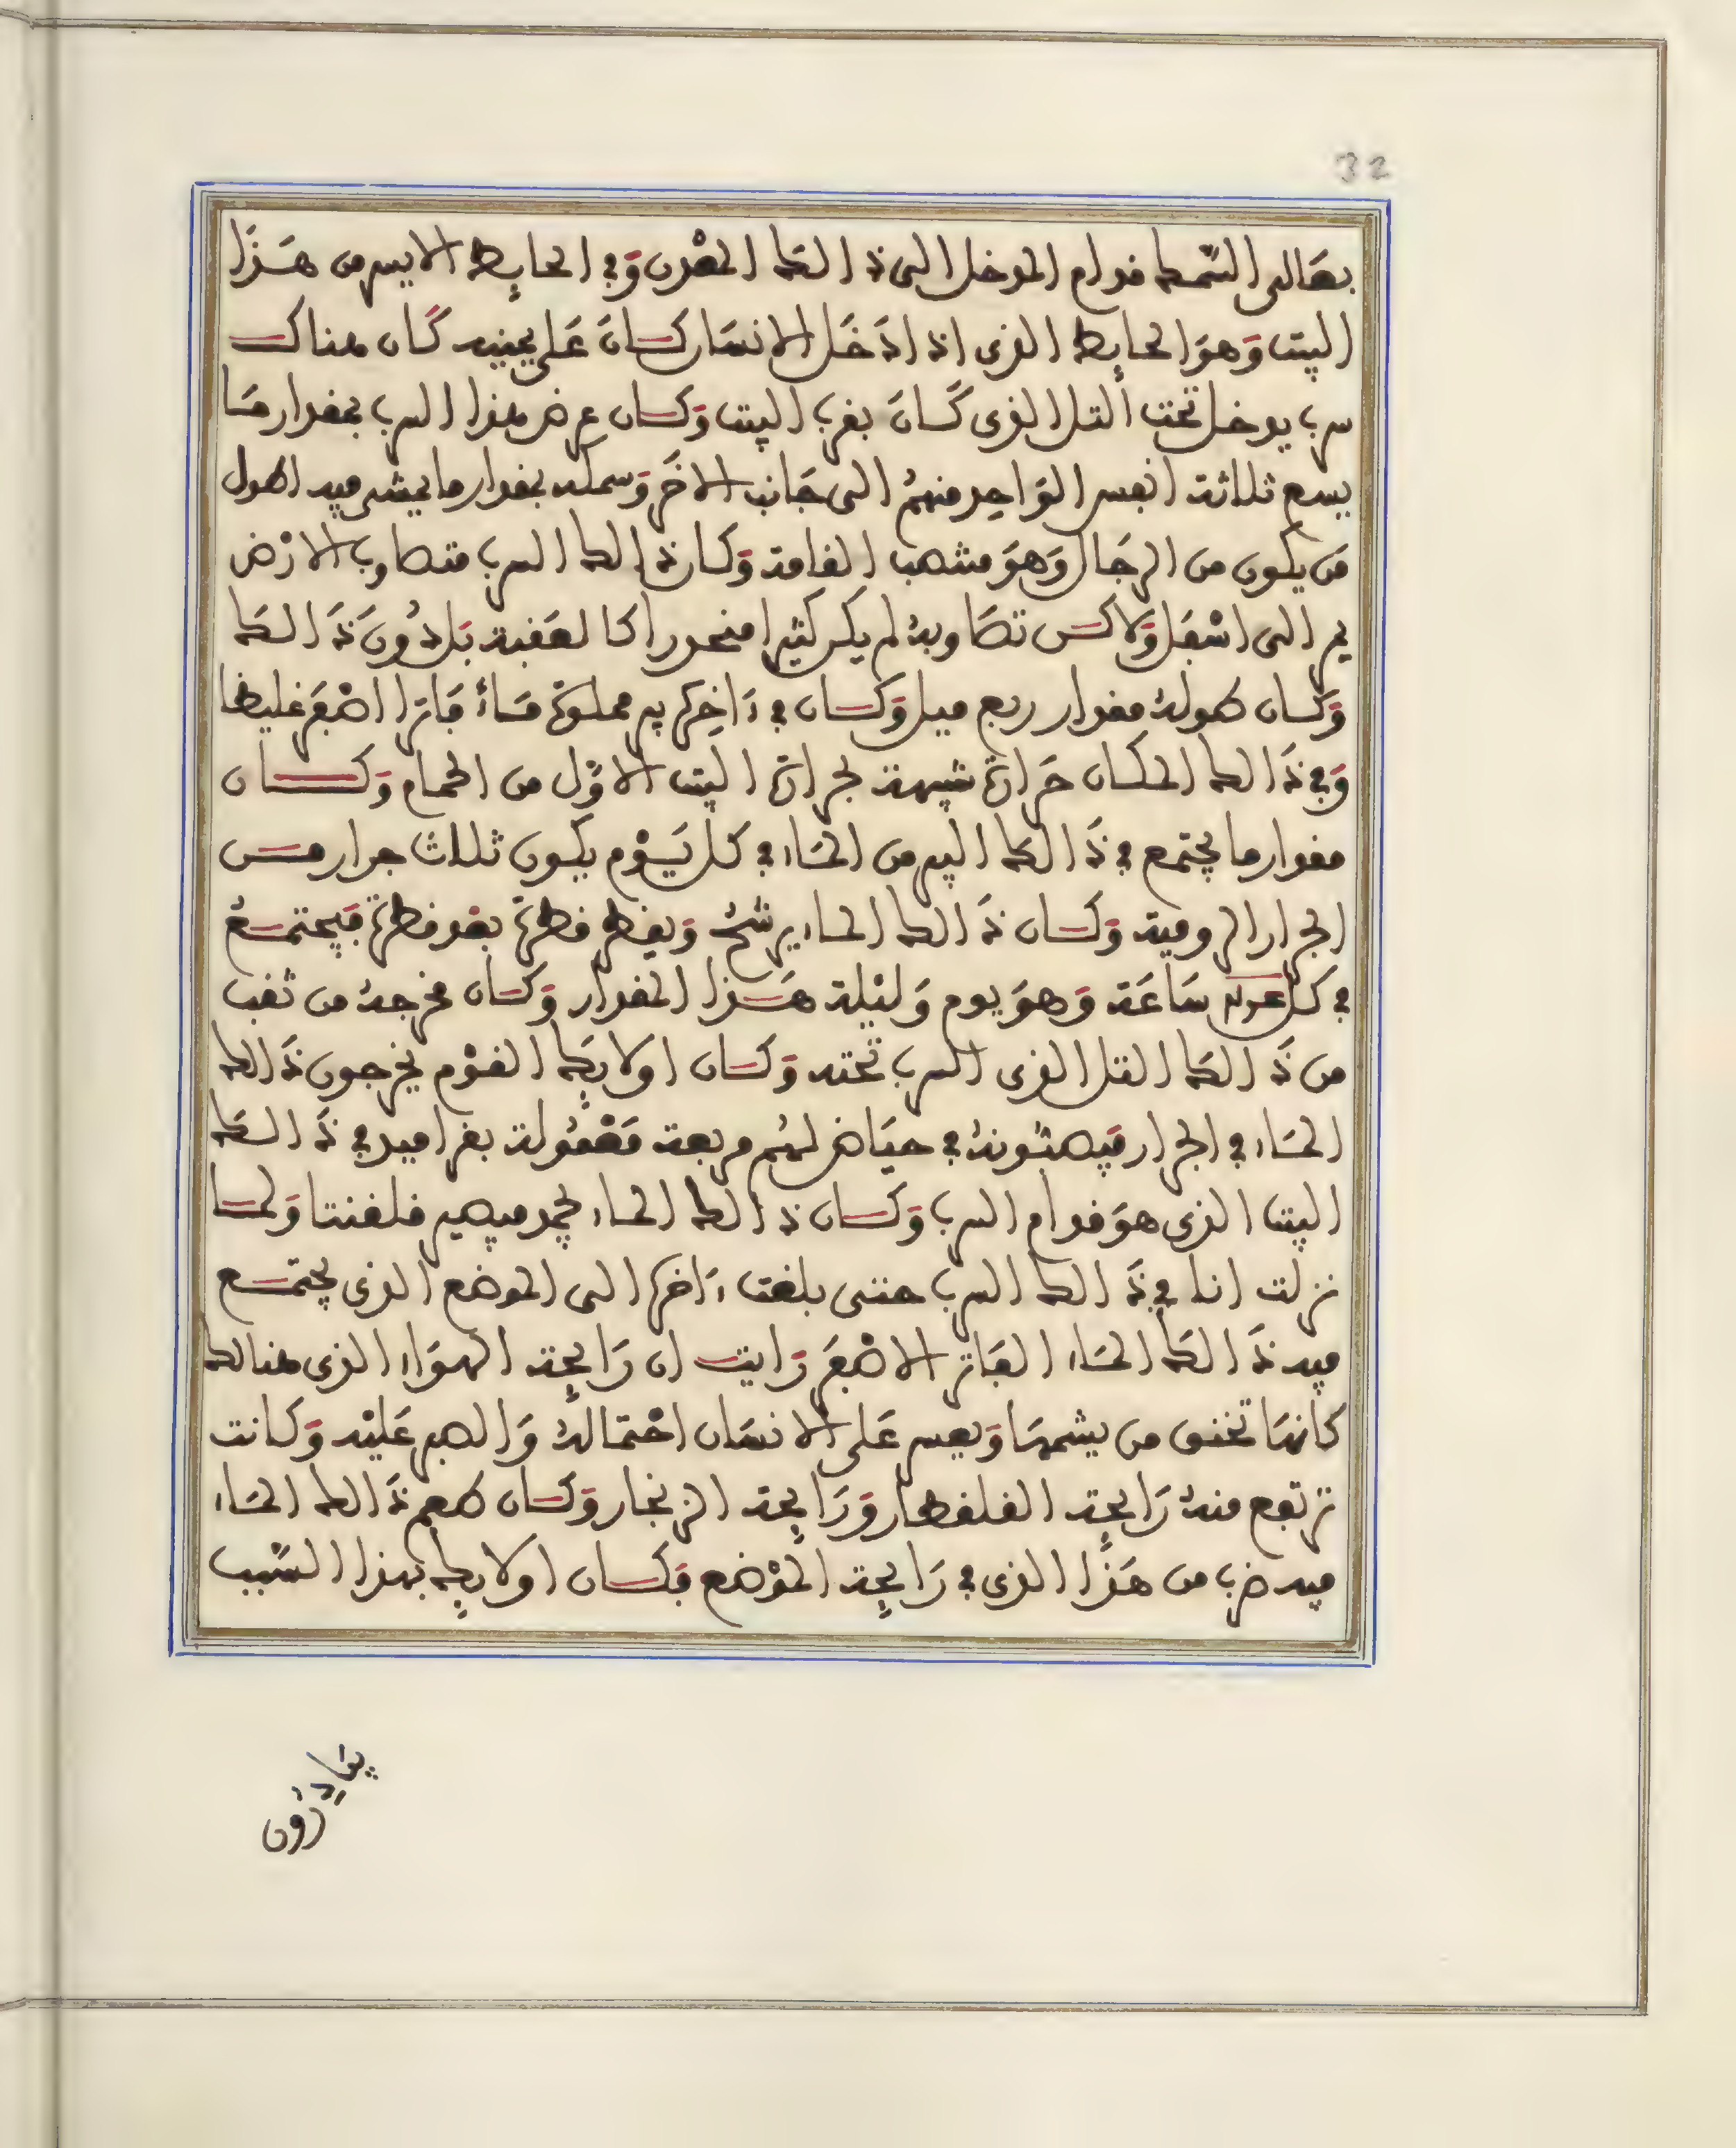 32
بصَالى الشمط فدام المدخل الى ذالك المعْدن وَفي الحايط الايسر من هَذا
البيت وَهوَ الحايط الذى اذا دَخَل الانسَان كان عَلى يمينه كَان هناك
سرب يدخل تحت التل الذى كَان بقرب البيت وَكان عرض هذا السرب بمقدار مَا
يسع ثلاثة انفس الوَاحِد منهمُ الى جَانب الاخَر وَسمكه بمقدار ما يمشى فيه اطول
مَن يكون من الرجَال وَهوَ منتصب القامة وَكان ذالك السرب متطاوب الارْض
يمر الى اسْفل وَلاكن تطَاوبهُ لم يكن كثيرا منحدرا كالعَقبة بَل دُونَ ذَالكَ
وَكان طولهُ مقدار ربع ميل وَكان في ءَاخِره بير مملوة مَاءً فَاترا اصْفَر غليظا
وَفي ذَالك المكان حَرارة شبيهة بحرارة البيت الاوّل من الحمام وَكان
مقدار ما يجتمع في ذَالكَ البير من المَاء في كل يَوْم يكون ثلاث جرار من
الجرار الرومية وَكان ذَالك الماء يرشحُ وَيقطر قطرةً بعْد قطرة فَيجتمعُ
في كل عدد سَاعَة وَهوَ يوم وَليْلة هَذا المقدار وَكان مخرجهُ من ثقب
من ذَالكَ التل الذى السرب تحته وَكان اولايكَ القوْم يخرجون ذَالك
المَاء في الجرار فيصبُّونهُ في حيَاض لهُم مربعة مَعْمُولة بقراميد في ذَالكَ
البيت الذى هوَ فدام السرب وَكان ذَالك الماء يجمد فيصير قلقنتا وَلمَا
نزلت انا في ذَالك السرب حتى بلغت ءَاخره الى الموضع الذى يجتمع
فيه ذَالكَ المَاء الفَاتر الاصْفَر رَايت ان رَايِحة الهوَاء الذى هنالك
كانهَا تخنق من يشمهَا وَيعسر عَلى الانسَان احْتمالهُ وَالصبر عَليْه وَكانت
ترتفع منهُ رَايِحة القلقطار وَرَايِحة الزنجار وَكان طعم ذَالك المَاء
فيه ضرب من هَذَا الذى في رَايِحة الموْضع فَكان اولايِك بهذا السّبب
يبَادرُون